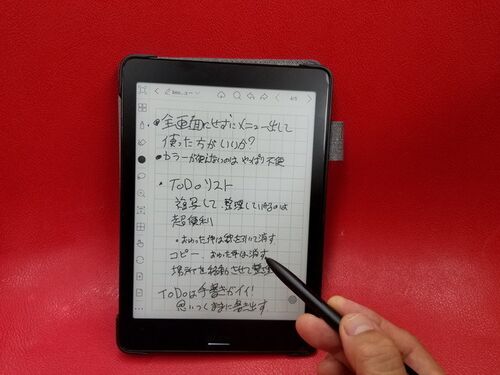 4/5
全画面にせずにメニュー出して
使った方がいいか?
カラーが使えないのは やっぱり不便
ToDoリスト
複写して、整理していけるのは
超便利
おわった件は線を引いて消す
コピー、おわった件は消す
場所を移動させて整理
ToDoは手書きがイイ!
思いつくままに書き出す